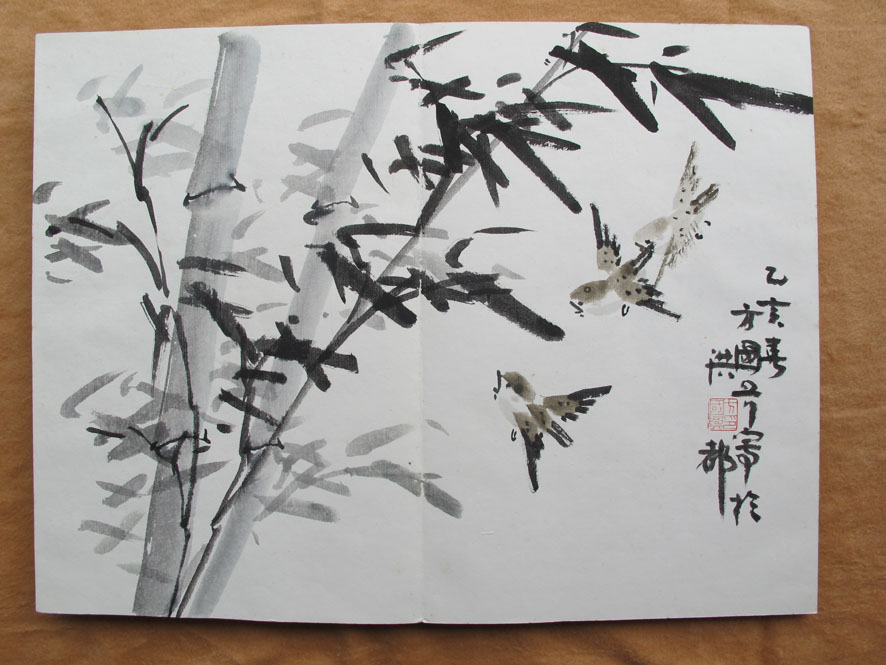 乙亥春
方國写於
洪都